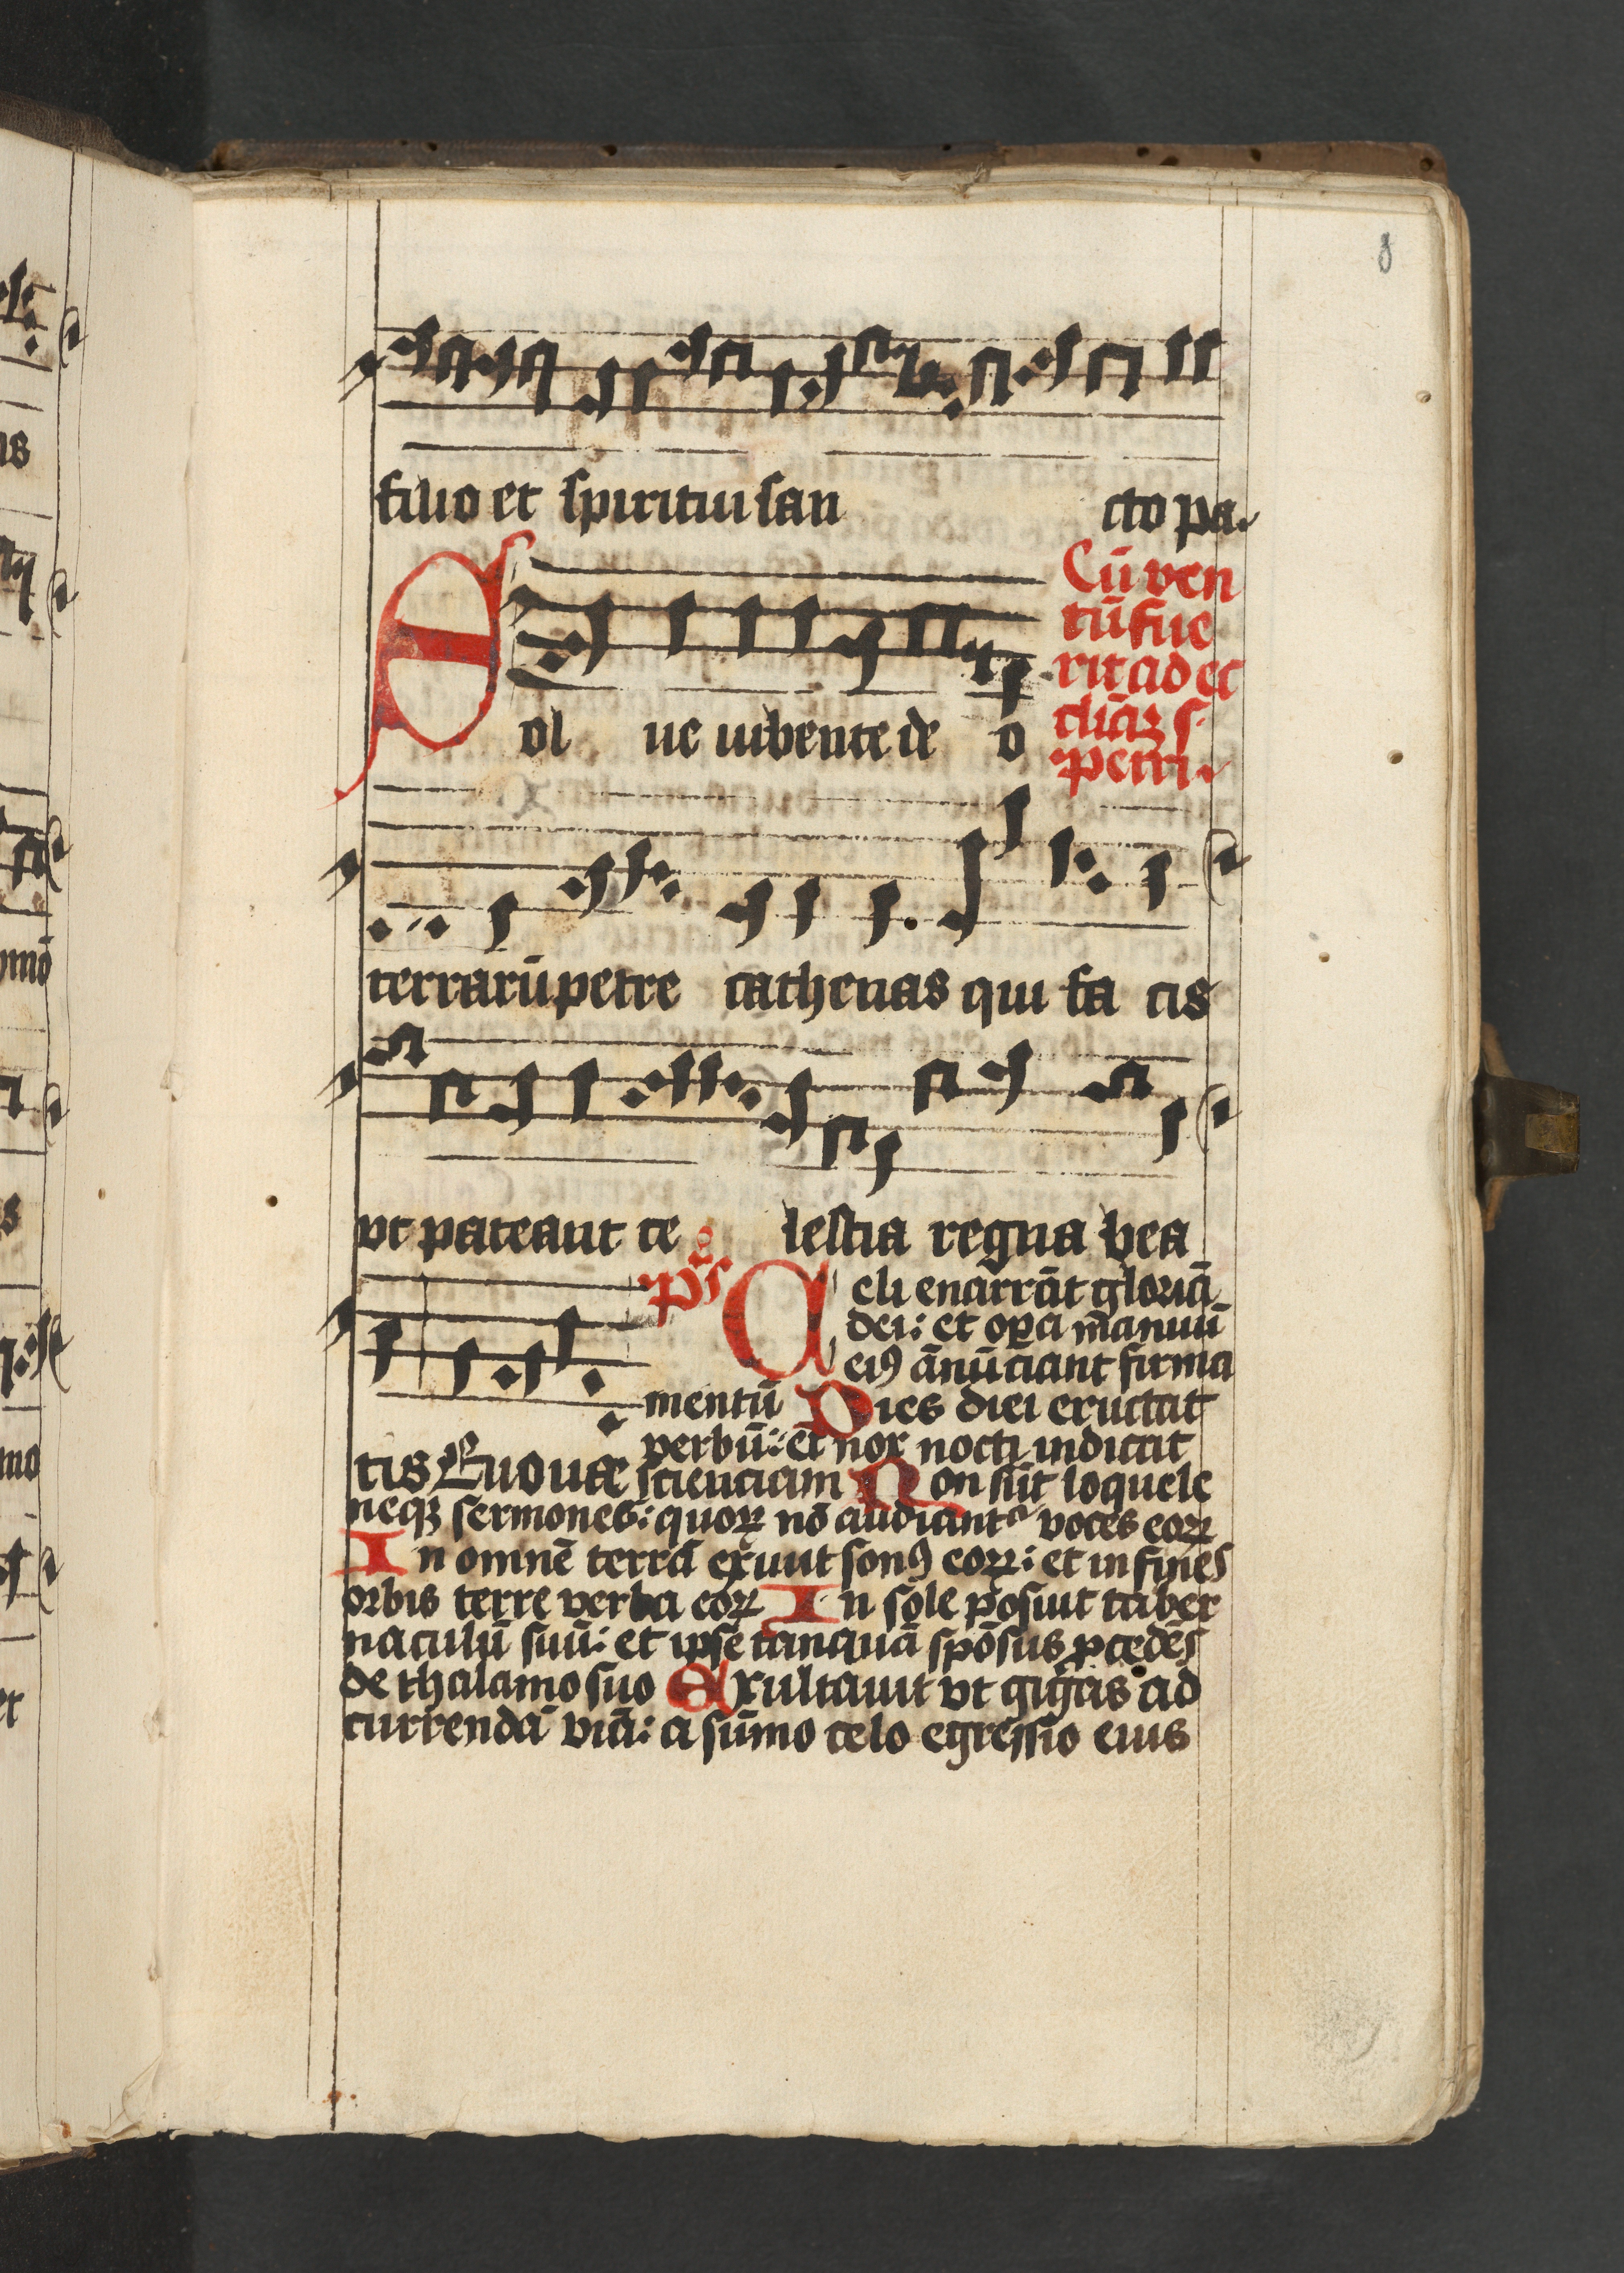 8
filio et spiritui san cto pa.
Cū ven
tū fue
rit ad ec
cliā s.
petri.
Sol ue iubente de o
terrarū petre cathenas qui fa cis
vt pateant ce lestia regna bea
ps Celi enarrāt gloriā
dei: et opa manuū
eiꝰ ānūciant firma
mentū Dies diei eructat
verbū: et nox nocti indicat
tis Euouae scienciam Non sūt loquele
neqꝫ sermones: quoꝝ nō audiant voces eoꝝ
In omnē terrā exiuit sonꝰ eoꝝ: et in fines
orbis terre verba eoꝝ In sole posuit taber
naculū suū: et ipse tanquā spōsus ꝓcedēs
de thalamo suo Exultauit vt gigas ad
currendā viā: a sūmo celo egressio eius